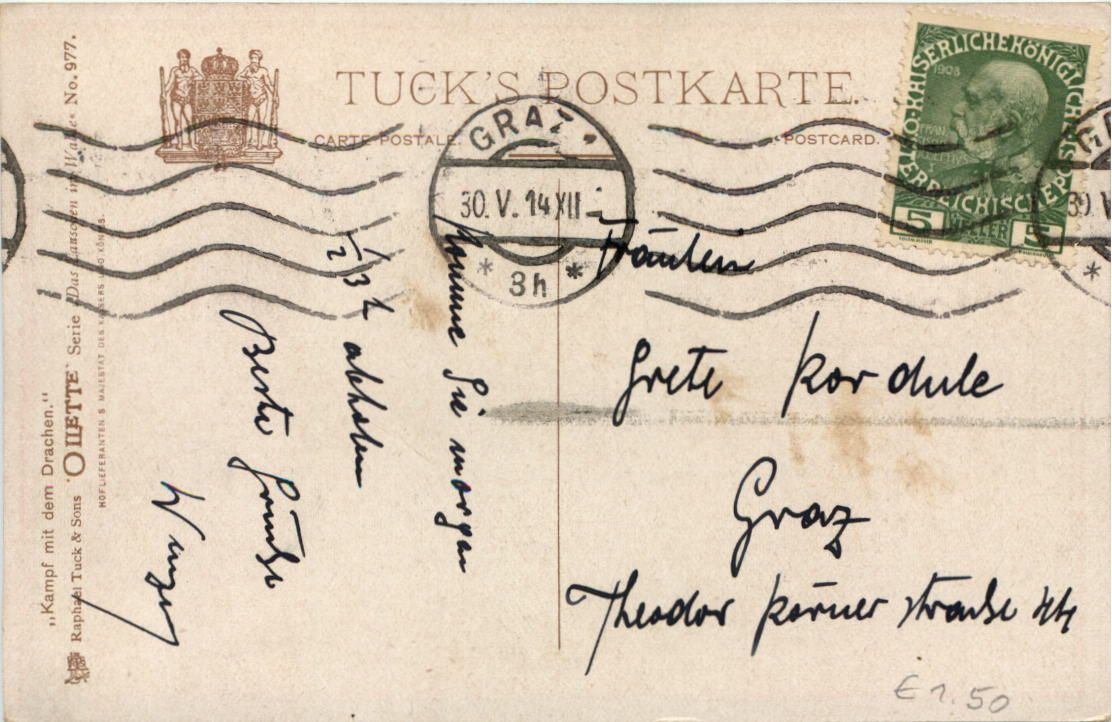 TUCK'S POSTKARTE.
CARTE POSTALE. POSTCARD.
KAISERLICHE KÖNIGLICHE
ÖSTERREICHISCHE POST
1908
5 HELLER 5
GRAZ
30. V. 14 XII
* 3h *
Komme Sie morgen
1/2 3 h abholen
Beste Grüße
Fräulein
Grete Kordule
Graz
Theodor Körner straße 44
„Kampf mit dem Drachen."
Raphael Tuck & Sons "OILETTE" Serie „Das Rauschen im Walde" No. 977.
HOFLIEFERANTEN S. MAJESTÄT DES KAISERS UND KÖNIGS.
€ 1.50